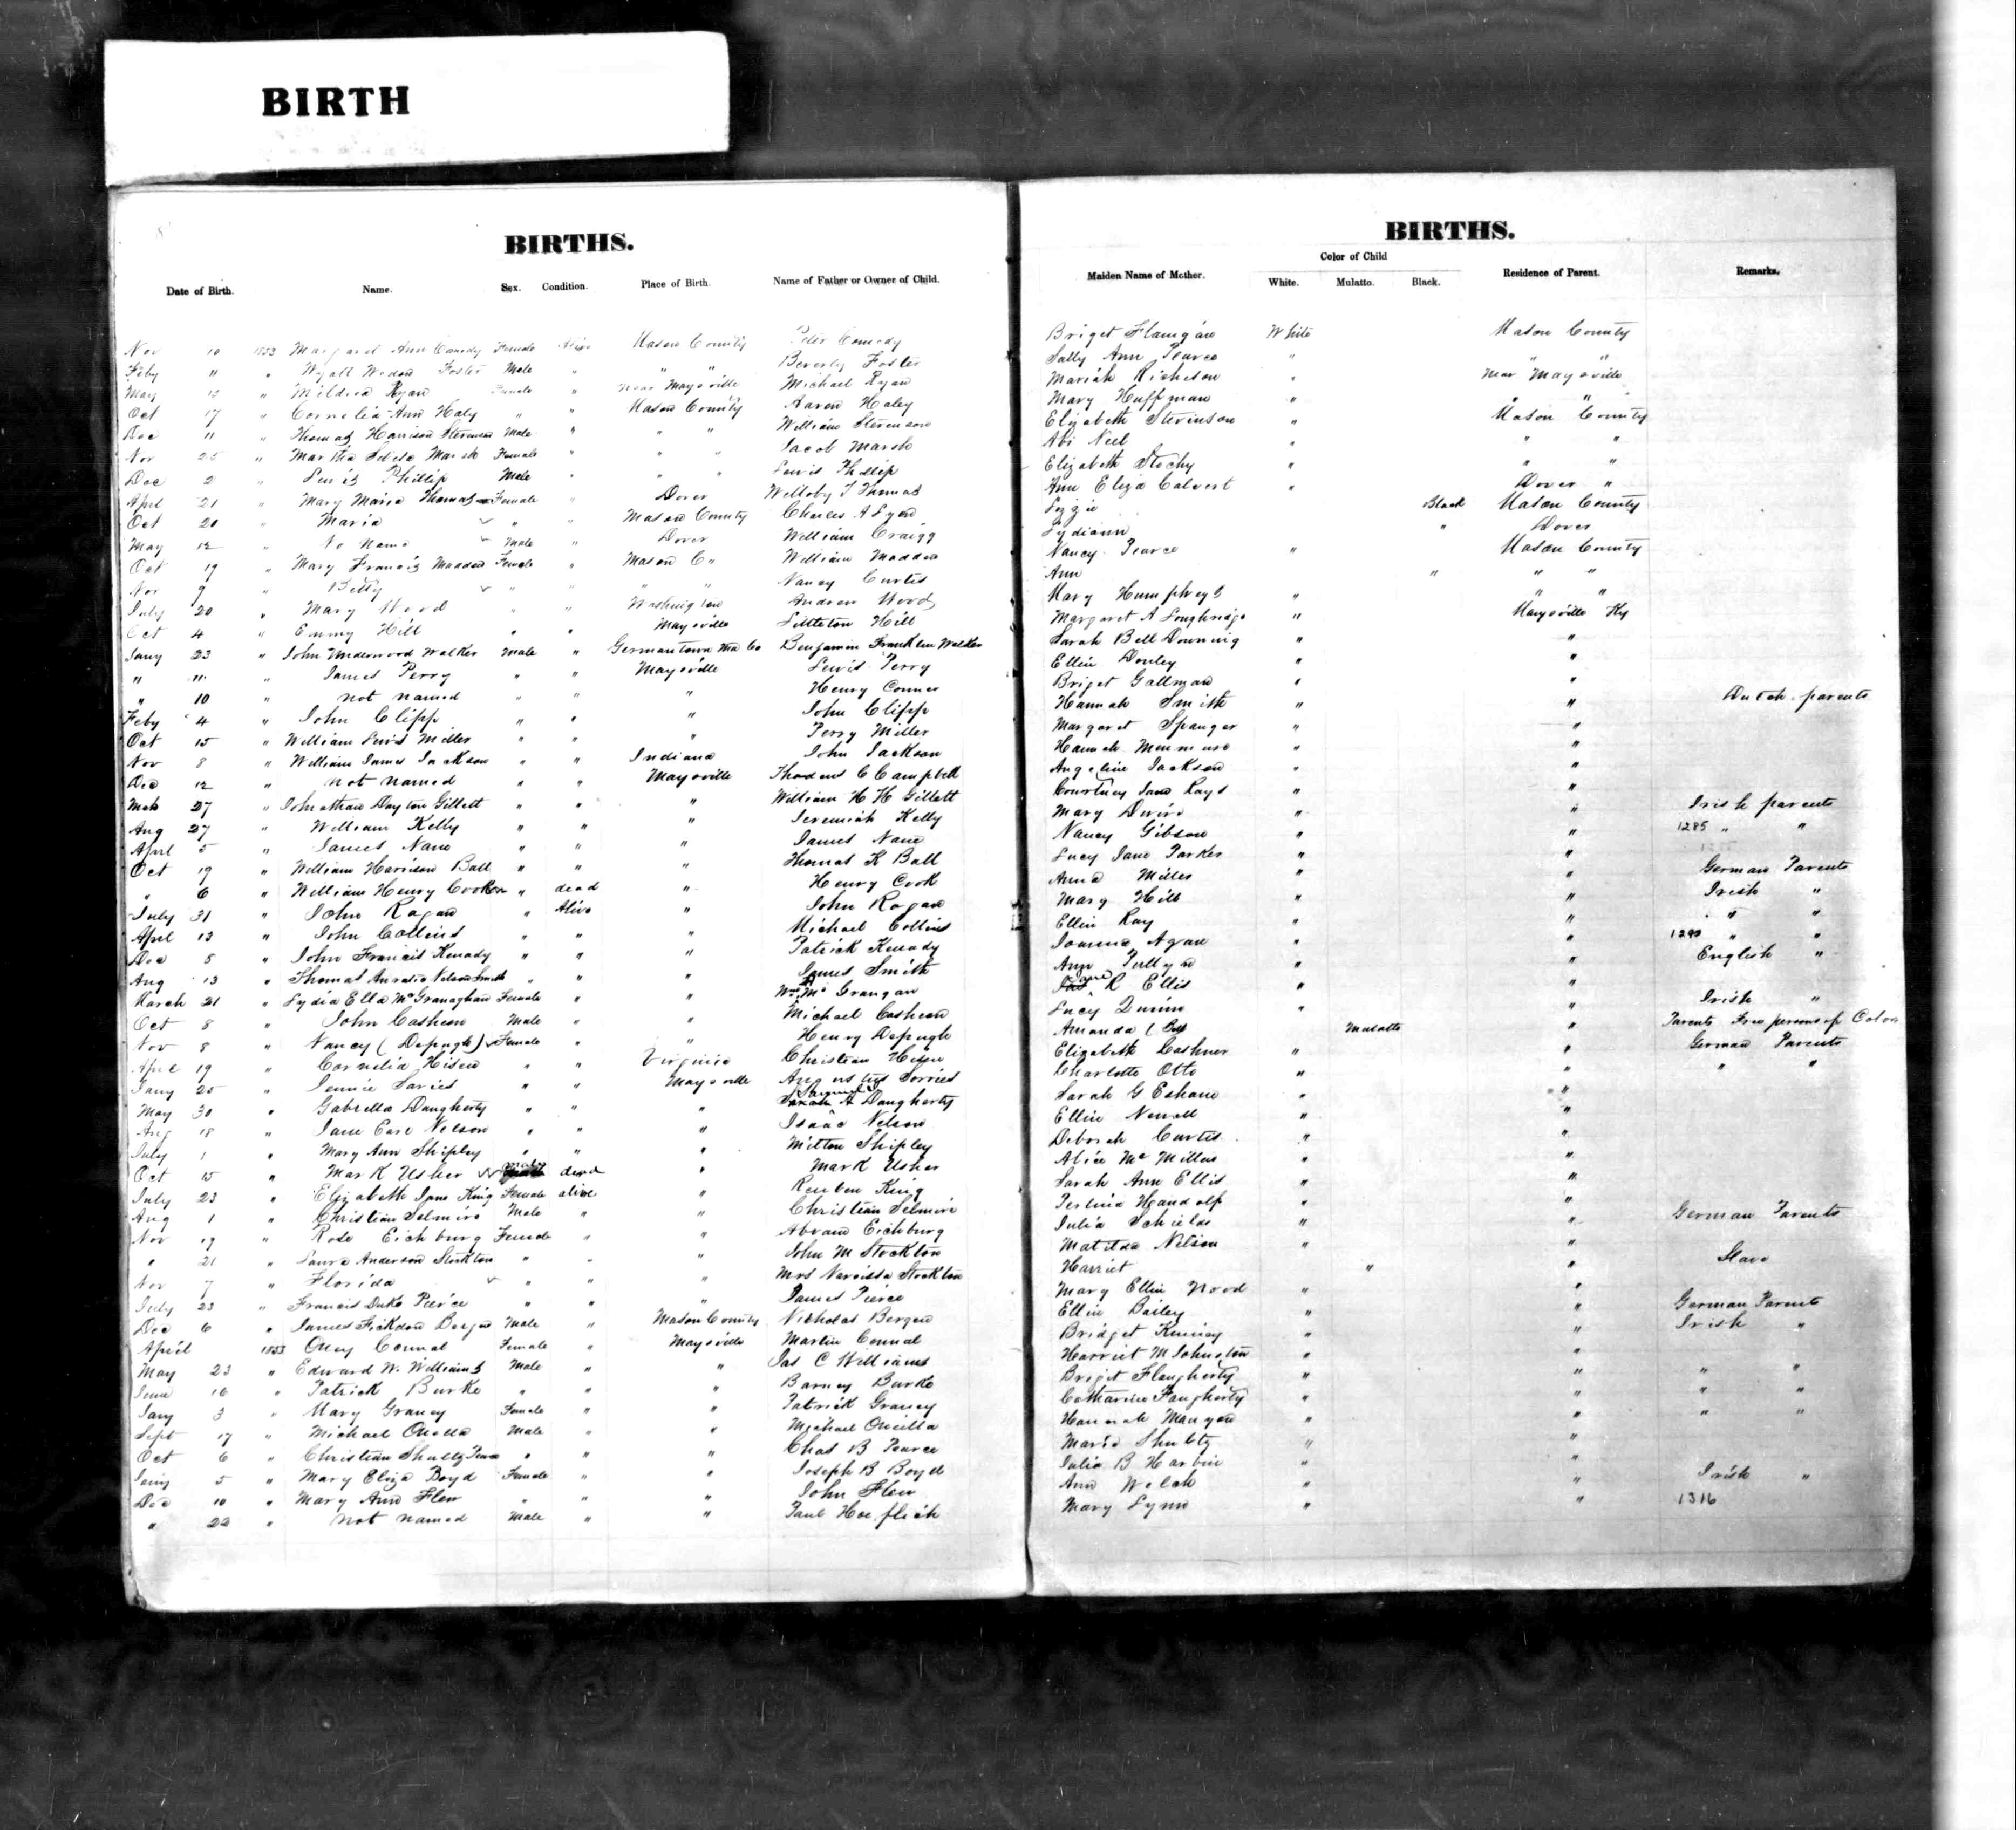 BIRTH
BIRTHS.
Date of Birth. Name. Sex. Condition. Place of Birth. Name of Father or Owner of Child.
Nov 10 1853 Margaret Ann Comedy Female Alive Mason County Peter Comedy
Feby 11 " Wyatt Foster Male " " " Beverly Foster
May 12 " Mildred Ryan Female " Near Maysville Michael Ryan
Oct 17 " Cornelia Ann Haly " " Mason County Aaron Haley
Dec 11 " Thomas Harrison Stevenson Male " " " William Stevenson
Nov 25 " Martha Marsh Female " " " Jacob Marsh
Dec 2 " Lewis Phillip Male " " " Lewis Phillip
April 21 " Mary Maria Thomas Female " Dover Welloby T Thomas
Oct 20 " Maria " " Mason County Charles A Lyon
May 12 " No Name Male " Dover William Craigg
Oct 19 " Mary Francis Madden Female " Mason C" William Madden
Nov 9 " Betty " " " " Nancy Curtis
July 20 " Mary Wood " " Washington Andrew Wood
Oct 4 " Emmy Hill " " Maysville Littleton Hill
Jany 23 " John Underwood Walker Male " Germantown Ma Co Benjamin Franklin Walker
" 11 " James Perry " " Maysville Lewis Perry
" 10 " not named " " " Henry Conner
Feby 4 " John Clipp " " " John Clipp
Oct 15 " William Lewis Miller " " " Perry Miller
Nov 8 " William James Jackson " " Indiana John Jackson
Dec 12 " not named " " Maysville C Campbell
Mch 27 " Johnathan Dayton Gillett " " " William H H Gillett
Aug 27 " William Kelly " " " Jeremiah Kelly
April 5 " James Nane " " " James Nane
Oct 19 " William Harrison Ball " " " Thomas K Ball
" 6 " William Henry " dead " Henry Cook
July 31 " John Ragan " Alive " John Ragan
April 13 " John Collins " " " Michael Collins
Dec 8 " John Francis Kenady " " " Patrick Kenady
Aug 13 " Thomas Nelson Smith " " " James Smith
March 21 " Lydia Ella McGranaghan Female " " Wm Mc Grangan
Oct 8 " John Casheen Male " " Michael Casheen
Nov 8 " Nancy (Depugh) Female " " Henry Depugh
April 19 " Cornelia Hisen " " Virginia Christian Hisen
Jany 25 " Jennie Sories " " Maysville Augustus Sorries
May 30 " Gabrella Daugherty " " " A Daugherty
Aug 18 " Jane Earl Nelson " " " Isaac Nelson
July 1 " Mary Ann Shipley " " " Milton Shipley
Oct 15 " Mark Usher dead " Mark Usher
July 23 " Elizabeth Jane King Female alive " Reuben King
Aug 1 " Christian Selmire Male " " Christian Selmire
Nov 19 " Rose Eichburg Female " " Abram Eichburg
" 21 " Laura Anderson Stockton " " " John M Stockton
Nov 7 " Florida " " " Mrs Narcissa Stockton
July 23 " Francis Duke Pierce " " " James Pierce
Dec 6 " James Bergen Male " Mason County Nicholas Bergen
April 1853 Oney Connal Female " Maysville Martin Connal
May 23 " Edward W. Williams Male " " Jas C Williams
June 16 " Patrick Burke " " " Barney Burke
Jany 3 " Mary Graney Female " " Patrick Graney
Sept 17 " Michael Male " " Michael Oneilla
Oct 6 " Christian Shultz " " " Chas B Pearce
Jany 5 " Mary Eliza Boyd Female " " Joseph B Boyd
Dec 10 " Mary Ann Flew " " " John Flew
" 22 " not named Male " " Paul Hoeflich
BIRTHS.
Maiden Name of Mother. Color of Child White. Mulatto. Black. Residence of Parent. Remarks.
Briget Flanigan White Mason County
Sally Ann Pearce " " "
Mariah Richeson " Near Maysville
Mary Huffman " " "
Elizabeth Stevinson " Mason County
Abi Neel " " "
Elizabeth Stochy " " "
Ann Eliza Calvert " Dover "
Lizzie Black Mason County
Lydiann " Dover
Nancy Pearce " Mason County
Ann " " "
Mary Humphreys " " "
Margaret A Loughridge " Maysville Ky
Sarah Bell Downing " "
Ellin Donley " "
Briget Gallman " "
Hannah Smith " " Dutch parents
Margaret Spanger " "
Hannah " "
Angeline Jackson " "
Courtney Jane Lays " "
Mary " " Irish parents
Nancy Gibson " " 1285 " "
Lucy Jane Parker " "
Anna Miller " " German Parents
Mary Hill " " Irish "
Ellin Ray " " " "
Joanna Agan " " 1290 " "
Ann " " English "
Jane R Ellis " "
Lucy Dunin " " Irish "
Amanda Mulatto " Parents Free persons of Color
Elizabeth Cashner " " German Parents
Charlotte Otto " " " "
Sarah G Eshane " "
Ellin Newell " "
Deborah Curtis " "
Alice Mc Millen " "
Sarah Ann Ellis " "
Handolf " "
Julia Schields " " German Parents
Matilda Nelson " "
Harriet " " Slave
Mary Ellin Wood " "
Ellin Bailey " " German Parents
Bridget Kinney " " Irish "
Harriet M Johnston " "
Briget Flaugherty " " " "
Catharine Faugherty " " " "
Hannah Mangan " " " "
Maria Shultz " "
Julia B Harbin " "
Ann Welch " " Irish "
Mary Lynn " " 1316